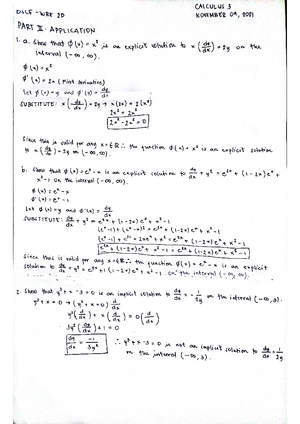 CALCULUS 3
NOVEMBER 09, 2021
PART II. APPLICATION
1. a. Show that φ(x) = x² is an explicit solution to x (dy/dx) = 2y on the
interval (-∞, ∞).
φ(x) = x²
φ'(x) = 2x (First derivative)
Let φ(x) = y and φ'(x) = dy/dx
SUBSTITUTE: x (dy/dx) = 2y → x(2x) = 2(x²)
2x² = 2x²
2x² - 2x² = 0
Since this is valid for any x ∈ ℝ ∴ the function φ(x) = x² is an explicit solution
to x (dy/dx) = 2y on (-∞, ∞).
b. Show that φ(x) = eˣ - x is an explicit solution to dy/dx + y² = e²ˣ + (1-2x)eˣ +
x² - 1 on the interval (-∞, ∞).
φ(x) = eˣ - x
φ'(x) = eˣ - 1
Let φ(x) = y and φ'(x) = dy/dx
SUBSTITUTE: dy/dx + y² = e²ˣ + (1-2x)eˣ + x² - 1
(eˣ-1) + (eˣ-x)² = e²ˣ + (1-2x)eˣ + x² - 1
(eˣ-1) + e²ˣ - 2xeˣ + x² = e²ˣ + (1-2x)eˣ + x² - 1
e²ˣ + (1-2x)eˣ + x² - 1 = e²ˣ + (1-2x)eˣ + x² - 1
Since this is valid for any x ∈ ℝ ∴ the function φ(x) = eˣ - x is an explicit
solution to dy/dx + y² = e²ˣ + (1-2x)eˣ + x² - 1 on the interval (-∞, ∞).
2. Show that y³ + x - 3 = 0 is an implicit solution to dy/dx = - 1/2y on the interval (-∞, 3).
dy/dx = -1/3y²
∴ y³ + x - 3 = 0 is not an implicit solution to dy/dx =
on the interval (-∞, 3).